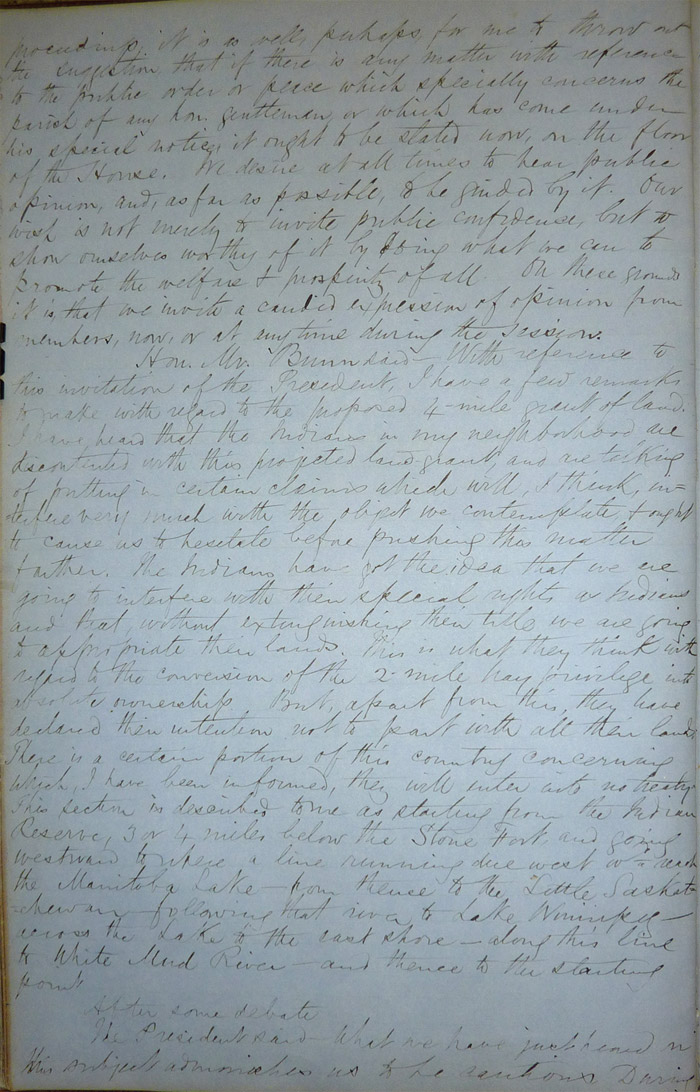 proceedings, it is as well, perhaps for me to throw out
the suggestion that if there is any matter with reference
to the public order or peace which specially concerns the
parish of any hon. gentleman, or which has come under
his special notice, it ought to be stated now, on the floor
of the House. We desire at all times to hear public
opinion, and, as far as possible, to be guided by it. Our
wish is not merely to invite public confidence, but to
show ourselves worthy of it by doing what we can to
promote the welfare & prosperity of all. On these grounds
it is that we invite a candid expression of opinion from
members, now, or at any time during the Session.
Hon. Mr. Bunn said – With reference to
this invitation of the President, I have a few remarks
to make with regard to the proposed 4 mile grant of land.
I have heard that the Indians in my neighborhood are
discontented with this projected land grant, and are talking
of putting in certain claims which will, I think, in-
terfere very much with the object we contemplate & ought
to cause us to hesitate before pushing this matter
farther. The Indians have got the idea that we are
going to interfere with their special rights as Indians
and that, without extinguishing their title, we are going
to appropriate their lands. This is what they think with
regard to the conversion of the 2 mile hay privilege into
absolute ownership. But, apart from this, they have
declared their intention not to part with all their lands.
There is a certain portion of this country concerning
which, I have been informed, they will enter into no treaty.
This section is described to me as starting from the Indian
Reserve, 3 or 4 miles below the Stone Fort, and going
westward to where a line running due west would reach
the Manitoba Lake – from thence to the Little Saskat-
chewan – following that river to Lake Winnipeg –
across the Lake to the east shore – along this line
to White Mud River – and thence to the starting
point
After some debate
The President said – What we have just heard on
this subject admonishes us to be cautious During